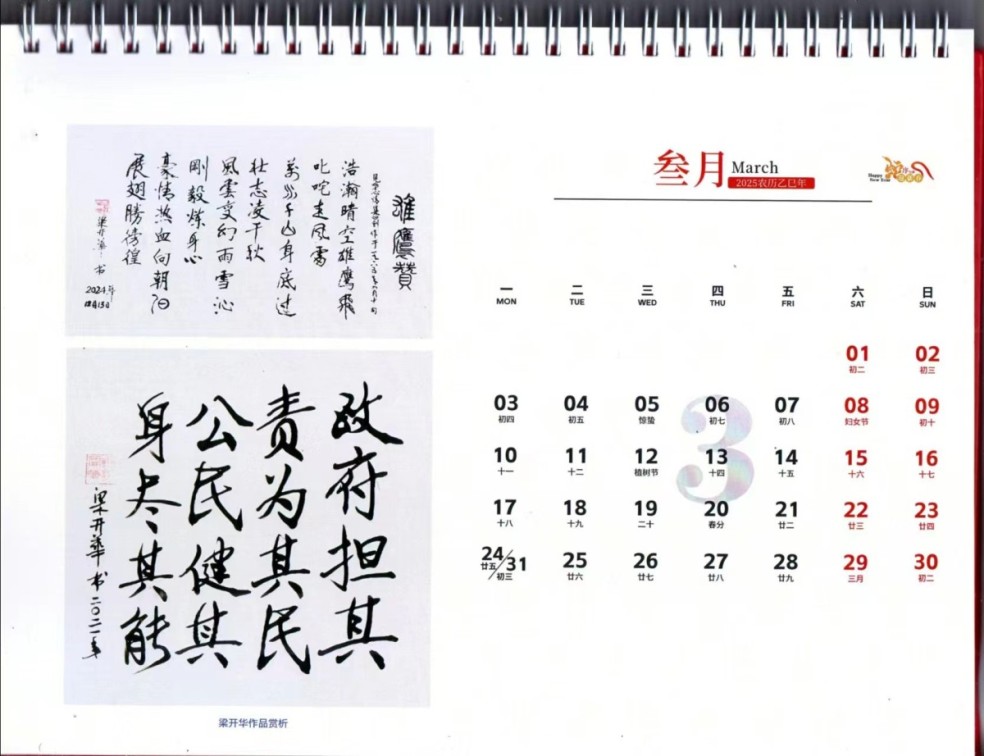 雄鹰赞
浩瀚晴空雄鹰飛
叱咤走风雷
万水千山身底过
壮志凌千秋
風雲变幻雨雪沁
刚毅炼身心
豪情热血向朝阳
展翅勝徬徨
梁开華 书
2024年
政府担其
责为其民
公民健其
身尽其能
梁开華书二〇二一年
梁开华作品赏析
叁月 March
2025农历乙巳年
Happy New Year
一 二 三 四 五 六 日
MON TUE WED THU FRI SAT SUN
01 02
初二 初三
03 04 05 06 07 08 09
初四 初五 惊蛰 初七 初八 妇女节 初十
3
10 11 12 13 14 15 16
十一 十二 植树节 十四 十五 十六 十七
17 18 19 20 21 22 23
十八 十九 二十 春分 廿二 廿三 廿四
24/31 25 26 27 28 29 30
廿五 初三 廿六 廿七 廿八 廿九 三月 初二